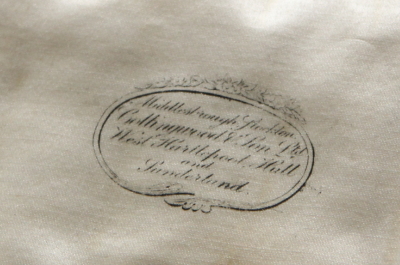 Middlesbrough, Stockton
Collingwood & Son Ltd
West Hartlepool, Hull
and
Sunderland.